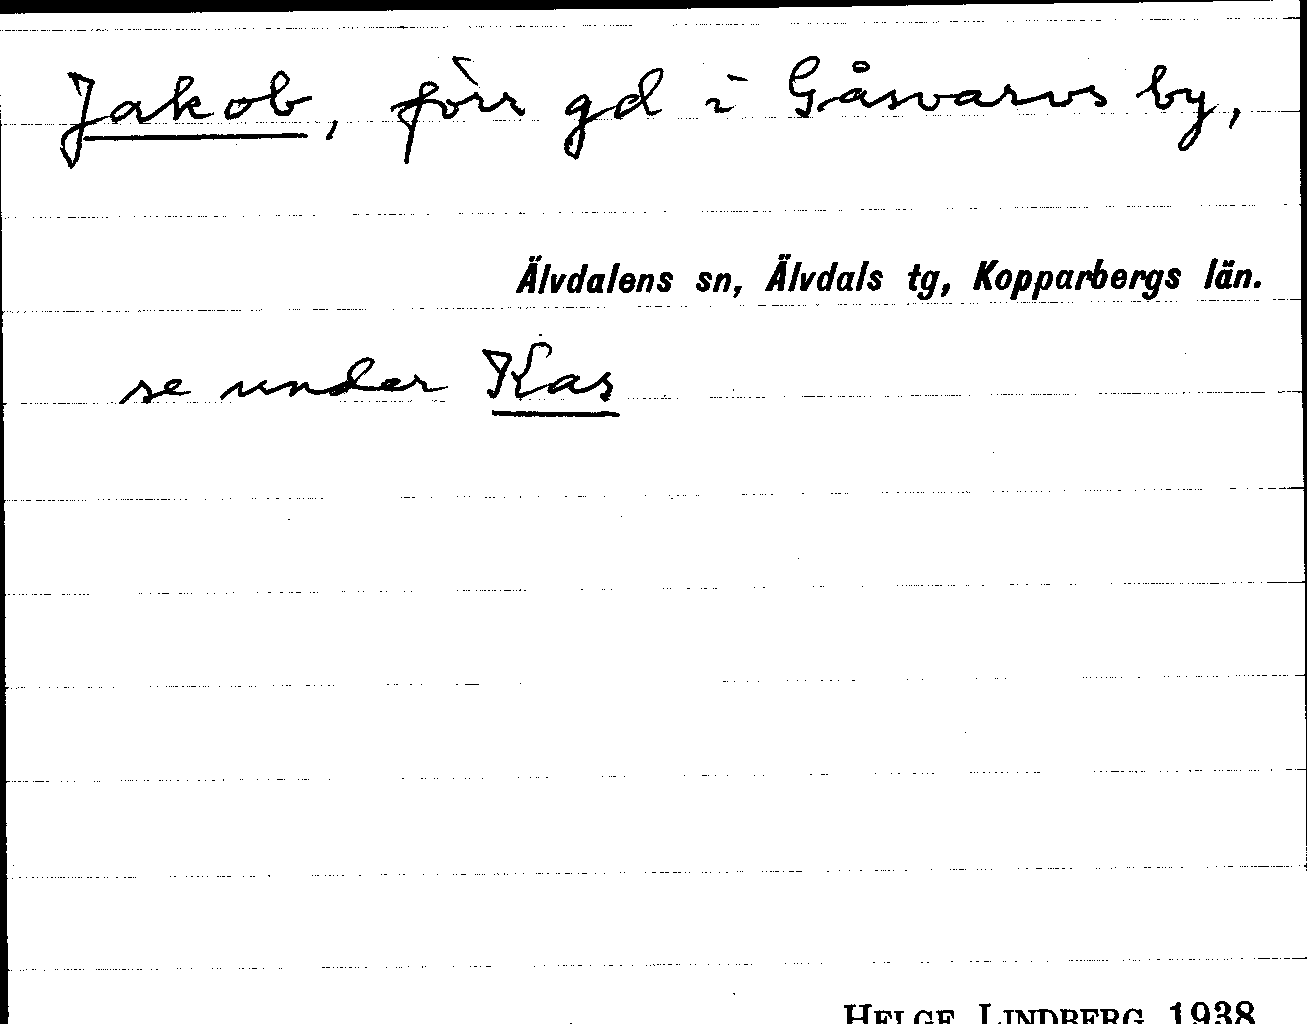 Jakob, förr gd i Gåsvarvs by,
Älvdalens sn, Älvdals tg, Kopparbergs län.
se under Kas
HELGE LINDBERG 1938